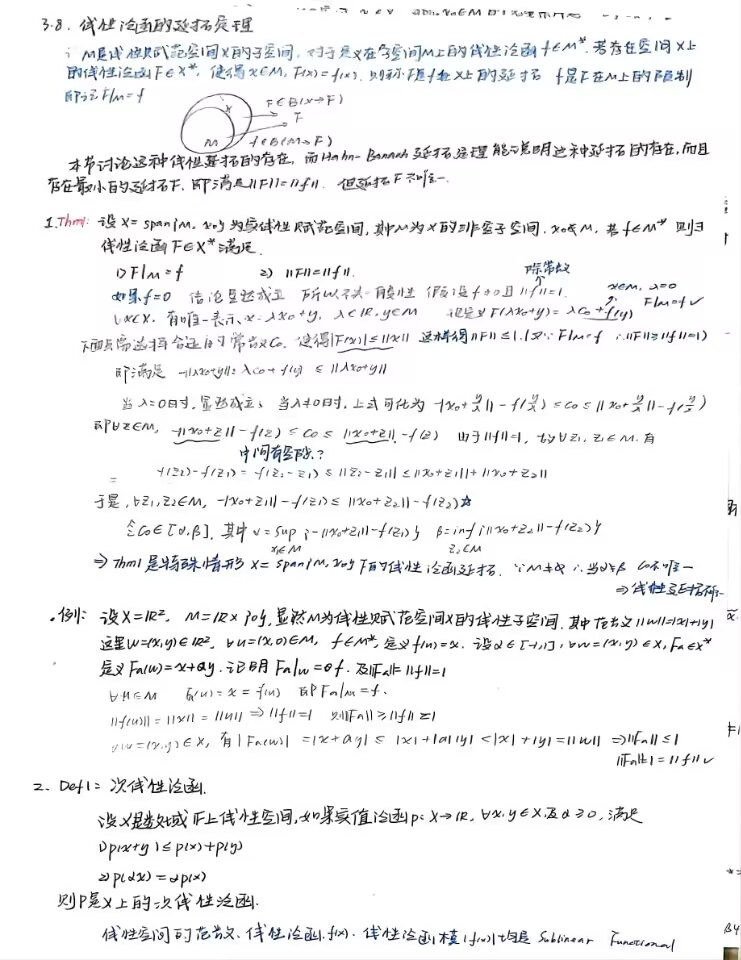 3.8. 线性泛函的延拓定理
∵ M是线性赋范空间X的子空间, 对于定义在子空间M上的线性泛函 f∈M*. 若存在空间X上
的线性泛函F∈X*, 使得x∈M, F(x)=f(x). 则称F是f在X上的延拓 f是F在M上的限制
即记F|M=f
X F∈B(X→F)
F
M f∈B(M→F)
本节讨论这种线性延拓的存在, 而Hahn-Banach延拓定理能说明这种延拓的存在, 而且
存在最小的延拓F. 即满足||F||=||f||. 但延拓F不唯一.
1. Thm1: 设X=span{M, x0}为实线性赋范空间, 其中M为X的非空子空间. x0∉M, 若f∈M* 则∃
线性泛函F∈X*满足.
1) F|M=f 2) ||F||=||f||. 除常数
如果f=0 结论显然成立 所以不失一般性 假设f≠0且||f||=1. x∈M, λ=0
∀x∈X. 有唯一表示. x=λx0+y, λ∈R, y∈M 记定义F(λx0+y)=λC0+f(y) F|M=f✓
下面只需选择合适的常数C0. 使得|F(x)|≤||x|| 这样得||F||≤1. (又∵F|M=f ∴||F||≥||f||=1)
即满足 -||λx0+y||≤λC0+f(y)≤||λx0+y||
当λ=0时, 显然成立; 当λ≠0时, 上式可化为 -||x0+y/λ||-f(y/λ)≤C0≤||x0+y/λ||-f(y/λ)
即∀z∈M, -||x0+z||-f(z)≤C0≤||x0+z||-f(z) 由于||f||=1, 故∀z1, z2∈M. 有
中间有空隙?
= f(z2)-f(z1)=f(z2-z1)≤||z2-z1||≤||x0+z1||+||x0+z2||
于是, ∀z1, z2∈M, -||x0+z1||-f(z1)≤||x0+z2||-f(z2)☆
令C0∈[α,β], 其中α=sup{-||x0+z1||-f(z1)} β=inf{||x0+z2||-f(z2)}
z1∈M z2∈M
⇒ Thm1是特殊情形 X=span{M, x0}下的线性泛函延拓. ∴当α≠β C0不唯一
⇒线性延拓不唯一
·例1: 设X=R². M=R×{0}, 显然M为线性赋范空间X的线性子空间. 其中范数||w||=|x|+|y|
这里w=(x,y)∈R², ∀u=(x,0)∈M, f∈M*, 定义f(u)=x. 设a∈[-1,1], ∀w=(x,y)∈X, Fa∈X*
定义Fa(w)=x+ay. 证明Fa|M=f. 及||Fa||=||f||=1
∀u∈M Fa(u)=x=f(u) 即Fa|M=f.
||f(u)||=||x||=||u||⇒||f||=1 则||Fa||≥||f||=1
∀w=(x,y)∈X, 有|Fa(w)|=|x+ay|≤|x|+|a||y|<|x|+|y|=||w|| ⇒||Fa||≤1
||Fa||=1=||f||✓
2. Def1: 次线性泛函.
设X是数域F上线性空间, 如果实值泛函p: X→R, ∀x,y∈X及α≥0, 满足
1) p(x+y)≤p(x)+p(y)
2) p(αx)=αp(x)
则P是X上的次线性泛函.
线性空间的范数、线性泛函f(x). 线性泛函模|f(x)|均是 Sublinear Functional